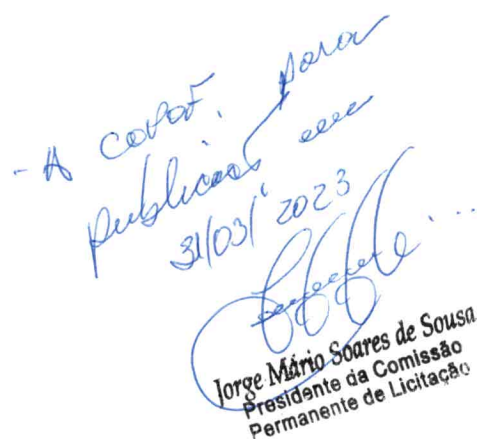 - A COPOF, para
publicação em
31/03/2023
Jorge Mário Soares de Sousa
Presidente da Comissão
Permanente de Licitação